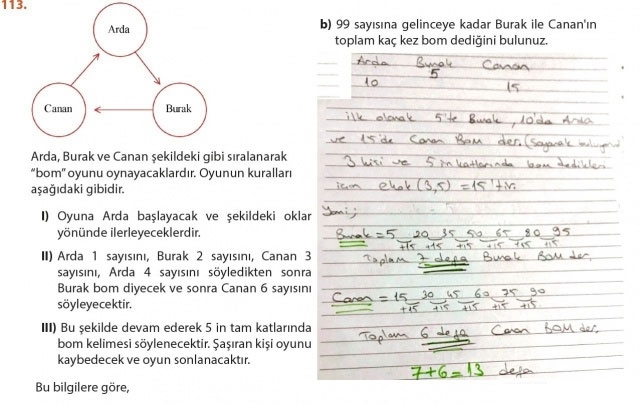 113.
Arda
Canan
Burak
Arda, Burak ve Canan şekildeki gibi sıralanarak
"bom" oyunu oynayacaklardır. Oyunun kuralları
aşağıdaki gibidir.
I) Oyuna Arda başlayacak ve şekildeki oklar
yönünde ilerleyeceklerdir.
II) Arda 1 sayısını, Burak 2 sayısını, Canan 3
sayısını, Arda 4 sayısını söyledikten sonra
Burak bom diyecek ve sonra Canan 6 sayısını
söyleyecektir.
III) Bu şekilde devam ederek 5 in tam katlarında
bom kelimesi söylenecektir. Şaşıran kişi oyunu
kaybedecek ve oyun sonlanacaktır.
Bu bilgilere göre,
b) 99 sayısına gelinceye kadar Burak ile Canan'ın
toplam kaç kez bom dediğini bulunuz.
Arda Burak Canan
5
10 15
ilk olarak 5'te Burak, 10'da Arda
ve 15'de Canan Bom der. (Sayarak
3 kişi ve 5 in katlarında bom dedikleri
için ekok (3,5) = 15'tir.
Yani;
Burak = 5 20 35 50 65 80 95
+15 +15 +15 +15 +15 +15
Toplam 7 defa Burak Bom der.
Canan = 15 30 45 60 75 90
+15 +15 +15 +15 +15
Toplam 6 defa Canan BOM der.
7+6=13 defa